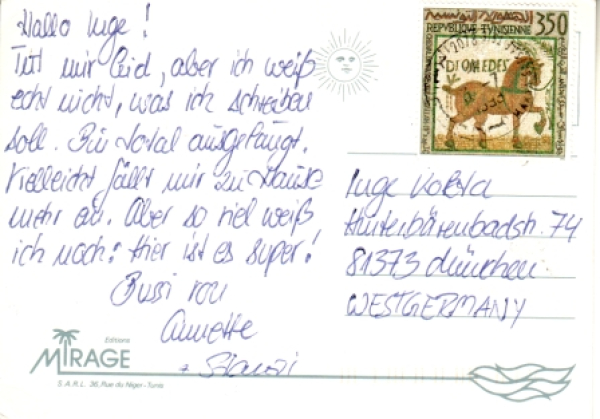 Hallo Inge!
Tut mir leid, aber ich weiß
echt nicht, was ich schreiben
soll. Bin total ausgelaugt.
Vielleicht fällt mir zu Hause
mehr ein. Aber so viel weiß
ich noch: Hier ist es super!
Bussi von
Annette
+
350
REPVBLIQVE TVNISIENNE
DIOMEDES
Inge
Hinterbärenbadstr. 74
81373 München
WESTGERMANY
Editions
MIRAGE
S.A.R.L. 36, Rue du Niger-Tunis